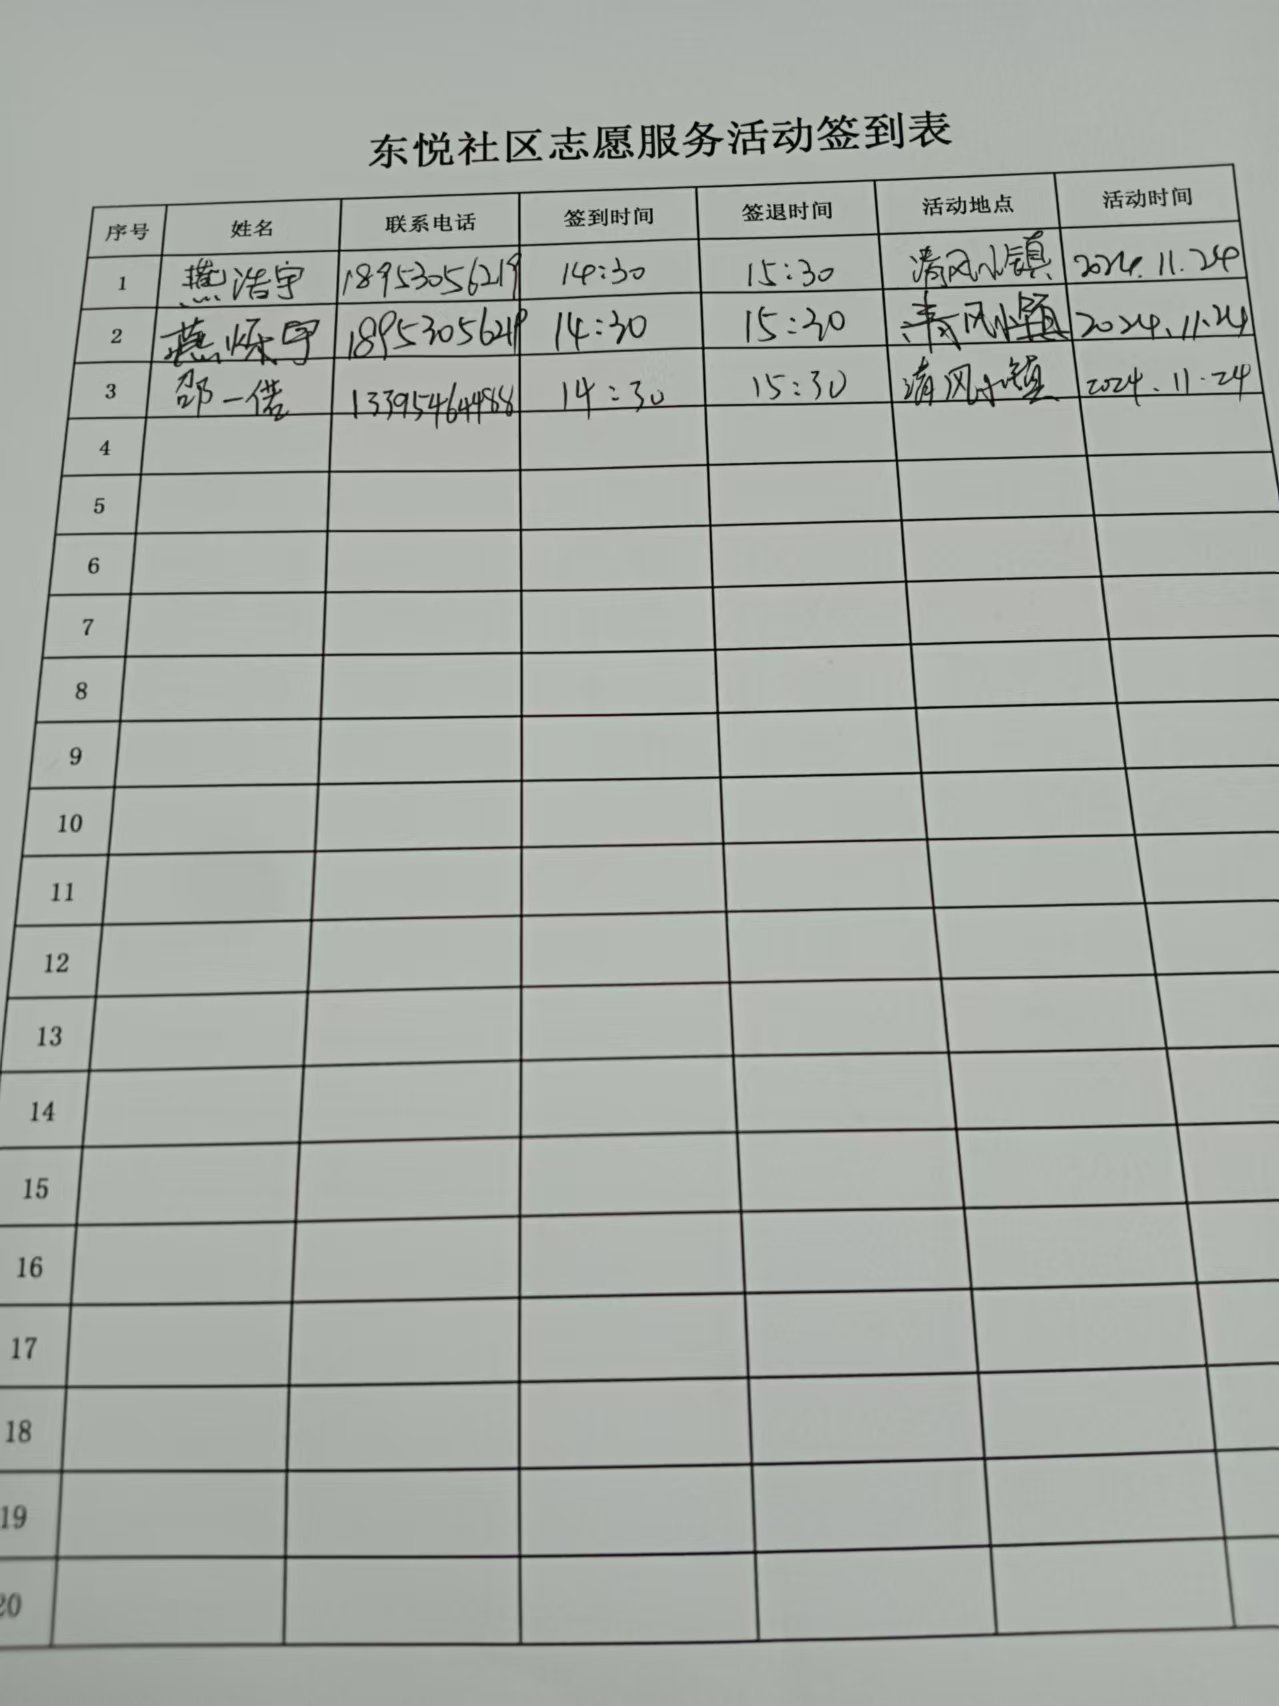 东悦社区志愿服务活动签到表
序号 姓名 联系电话 签到时间 签退时间 活动地点 活动时间
1 燕浩宇 18953056219 14:30 15:30 清风小镇 2024.11.24
2 燕烁宇 18953056219 14:30 15:30 清风小镇 2024.11.24
3 邵一偌 13395464488 14:30 15:30 清风小镇 2024.11.24
4
5
6
7
8
9
10
11
12
13
14
15
16
17
18
19
20